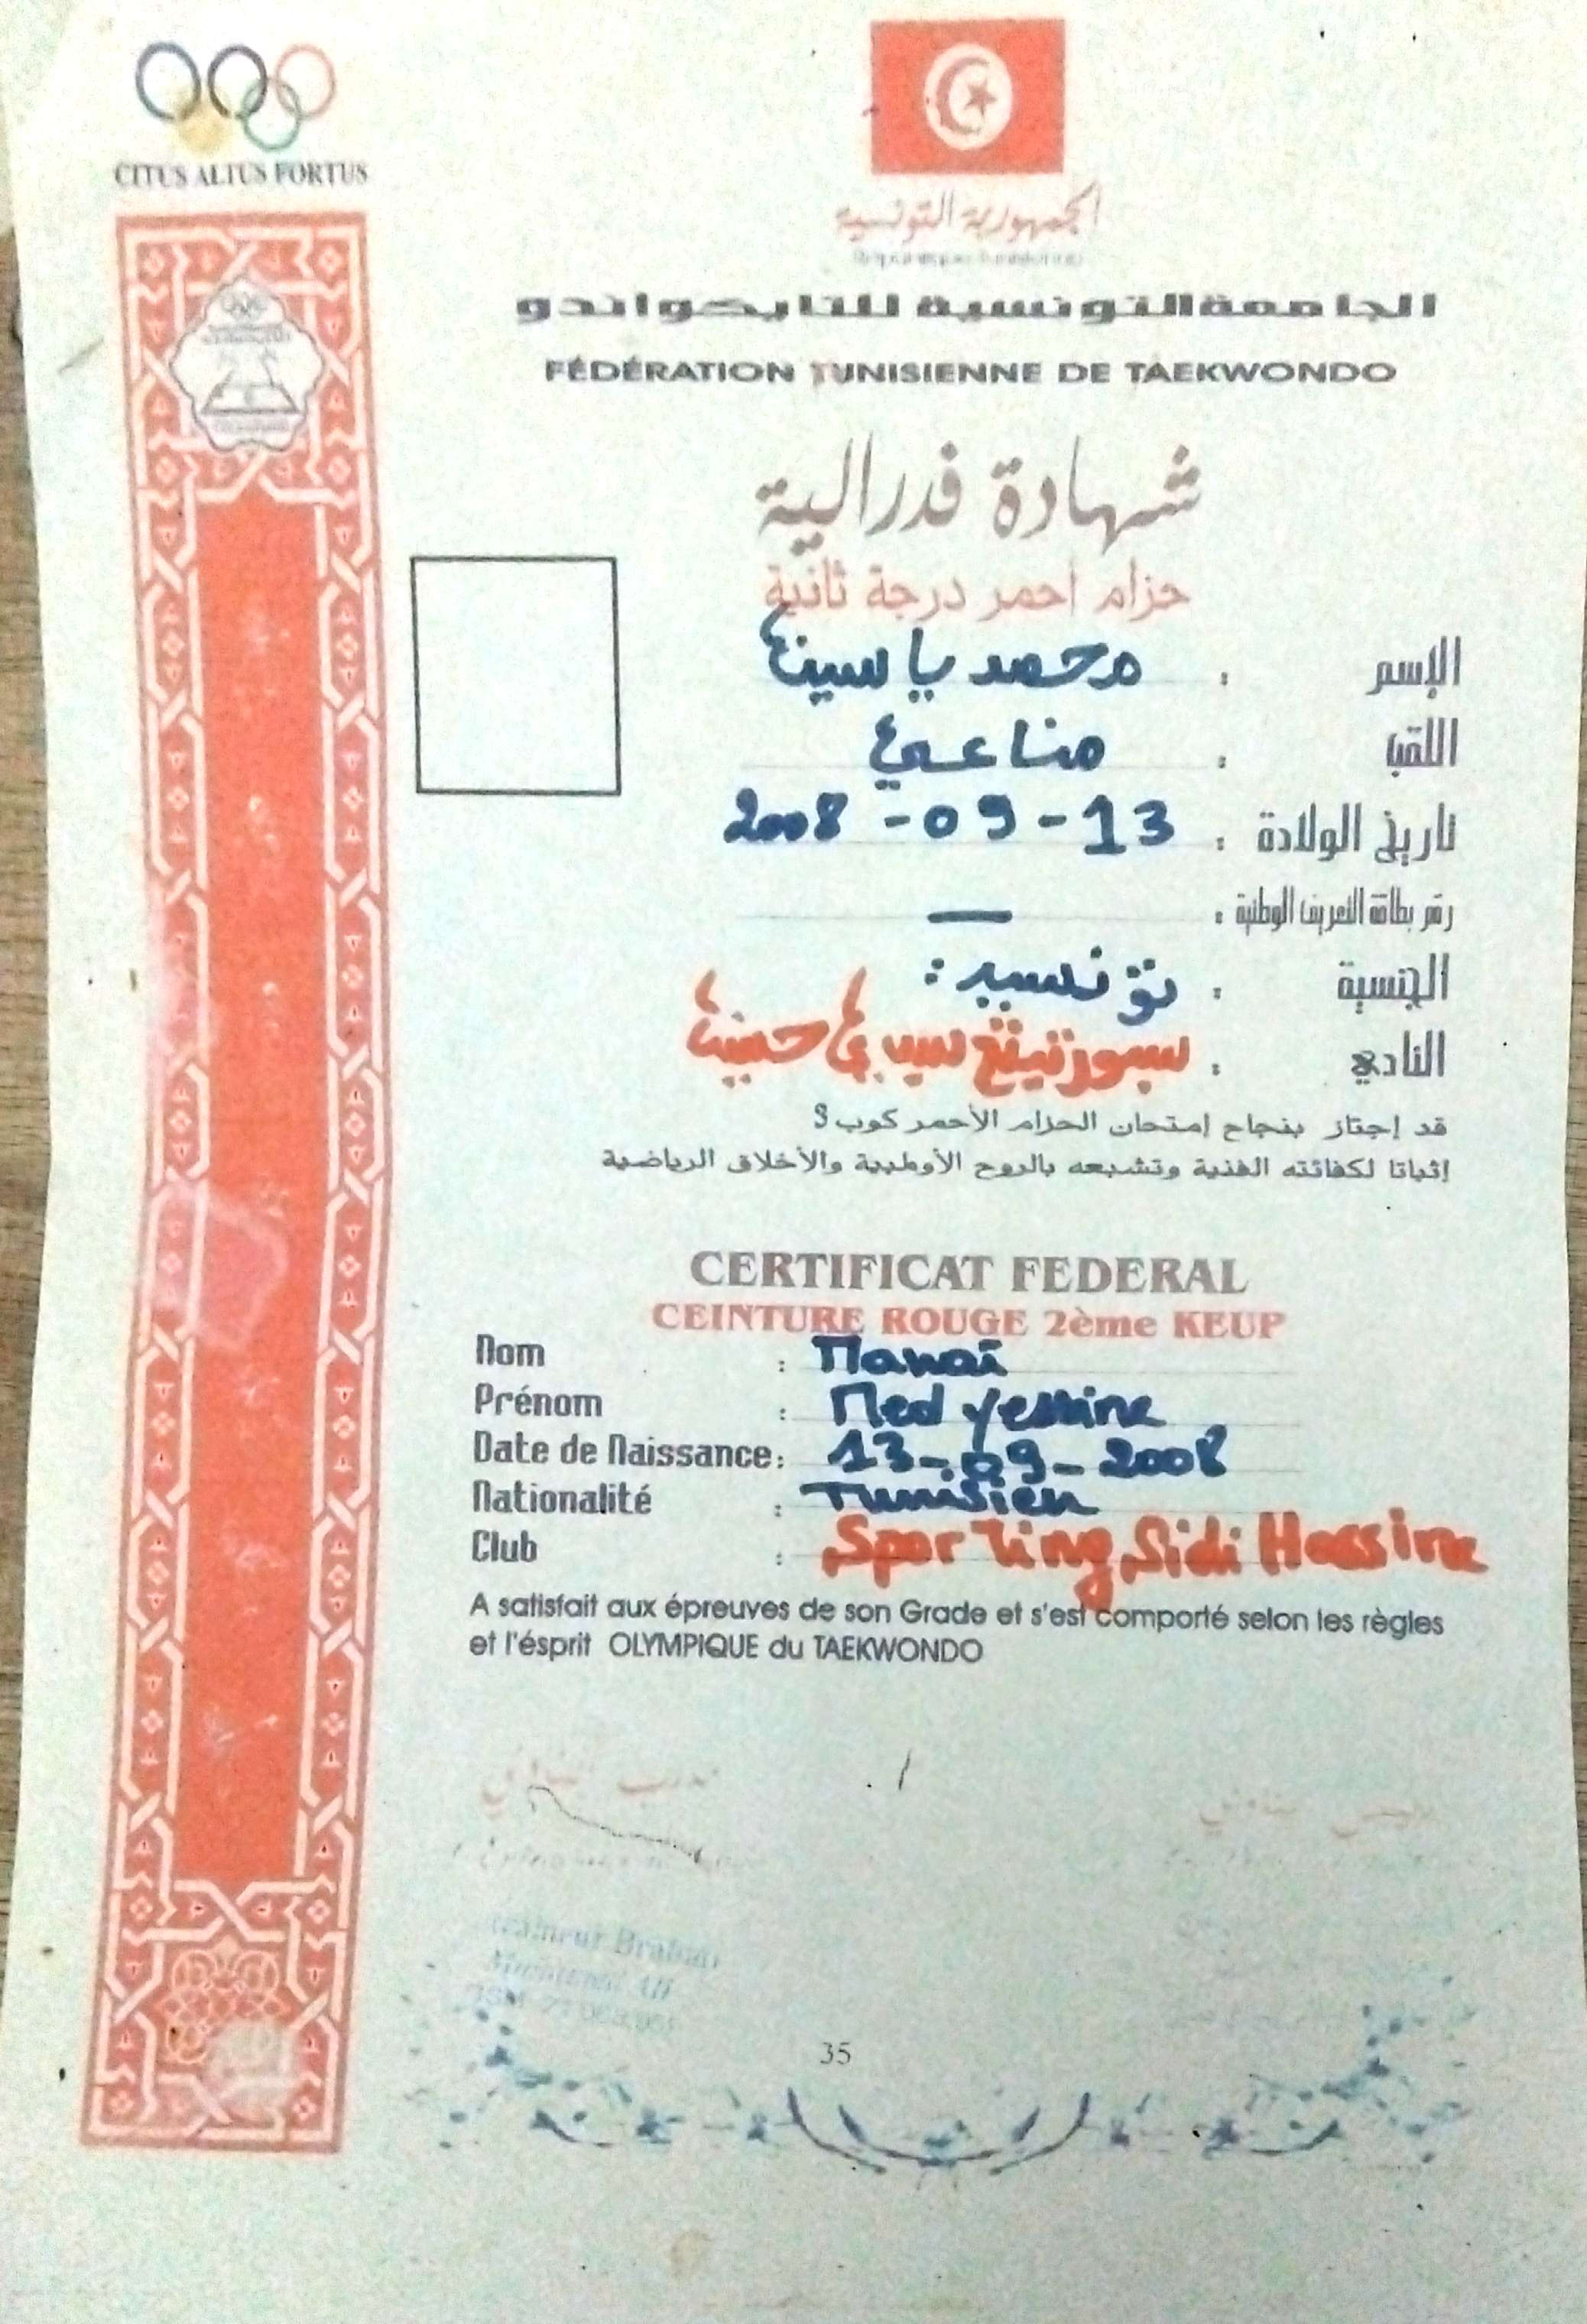 CITUS ALTUS FORTUS
الجمهورية التونسية
République Tunisienne
الجامعة التونسية للتايكواندو
FÉDÉRATION TUNISIENNE DE TAEKWONDO
شهادة فدرالية
حزام احمر درجة ثانية
الإسم : محمد ياسين
اللقب : مناعي
تاريخ الولادة : 13-09-2008
رقم بطاقة التعريف الوطنية : —
الجنسية : تونسية
النادي : سبورتينغ سيدي حسين
قد إجتاز بنجاح إمتحان الحزام الأحمر كوب
إثباتا لكفائته الفنية وتشبعه بالروح الأولمبية والأخلاق الرياضية
CERTIFICAT FEDERAL
CEINTURE ROUGE 2ème KEUP
Nom : Manaï
Prénom : Med Yessine
Date de Naissance : 13-09-2008
Nationalité : Tunisien
Club : Sporting Sidi Hassine
A satisfait aux épreuves de son Grade et s'est comporté selon les règles
et l'ésprit OLYMPIQUE du TAEKWONDO
35